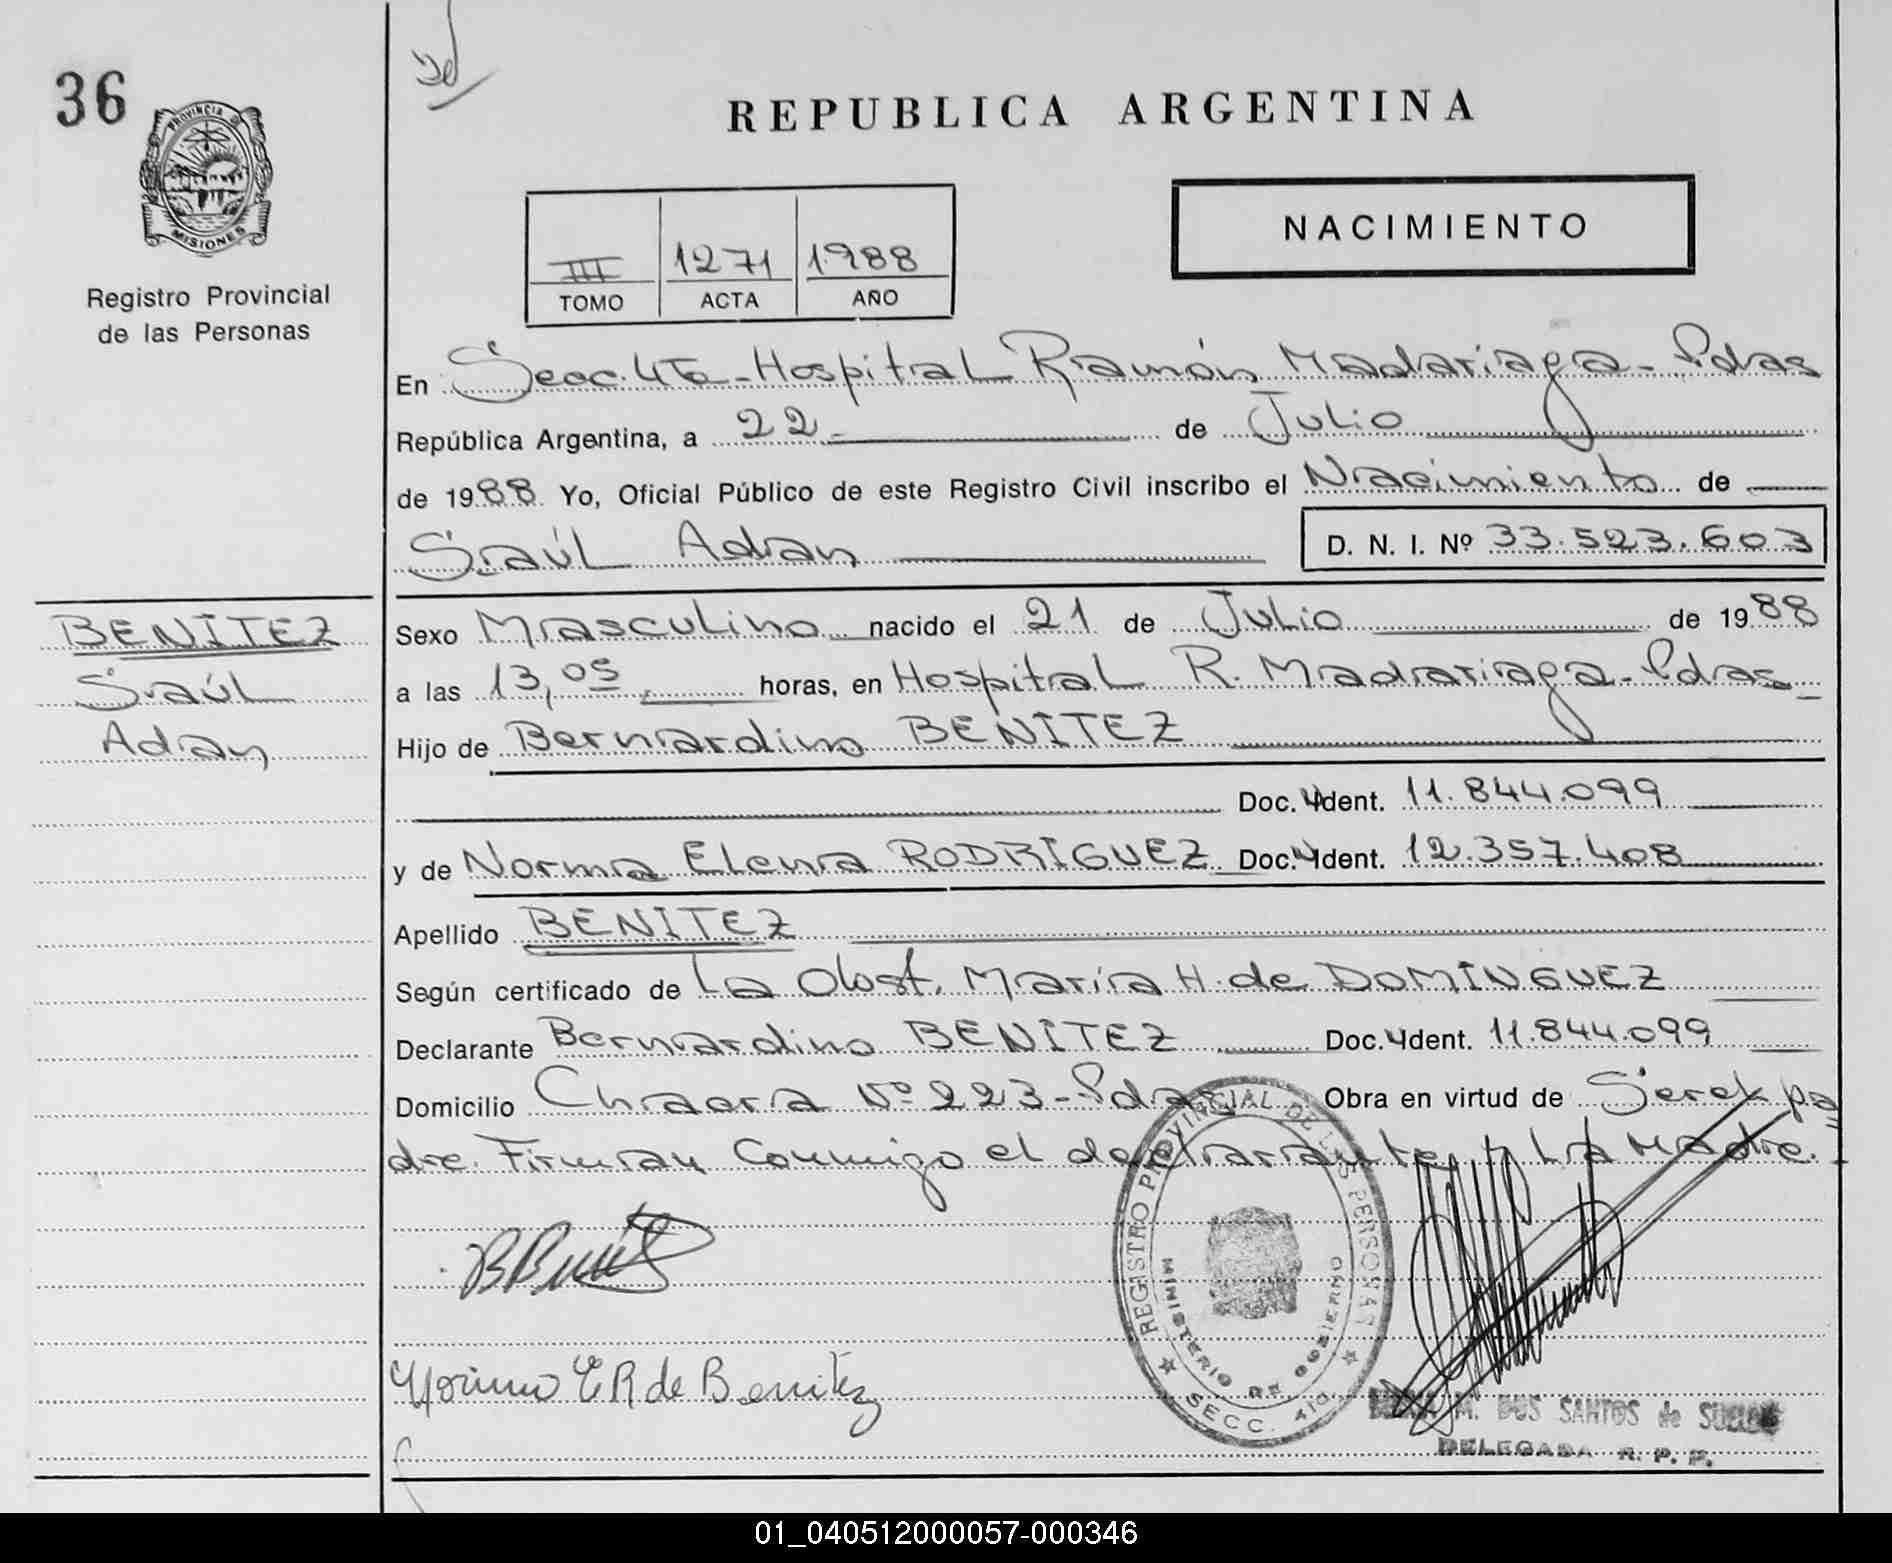 36
PROVINCIA DE
MISIONES
Registro Provincial
de las Personas
REPUBLICA ARGENTINA
NACIMIENTO
III 1271 1988
TOMO ACTA AÑO
En Secc. 4ta - Hospital Ramón Madariaga - Pdas
República Argentina, a 22 de Julio
de 1988 Yo, Oficial Público de este Registro Civil inscribo el Nacimiento de
Saúl Adran
D. N. I. Nº 33.523.603
BENITEZ
Saúl
Adran
Sexo Masculino nacido el 21 de Julio de 1988
a las 13,05 horas, en Hospital R. Madariaga - Pdas
Hijo de Bernardino BENITEZ
Doc. Ident. 11.844.099
y de Norma Elena RODRÍGUEZ Doc. Ident. 12.357.408
Apellido BENITEZ
Según certificado de La Obst. María H. de DOMINGUEZ
Declarante Bernardino BENITEZ Doc. Ident. 11.844.099
Domicilio Chacra Nº 223 - Pdas Obra en virtud de Ser el pa
dre. Firman Conmigo el declarante y La Madre.
B Benitez
Norma E R de Benitez
REGISTRO PROVINCIAL DE LAS PERSONAS
MINISTERIO DE GOBIERNO
SECC. 4ta
M. DOS SANTOS de
DELEGADA R. P. P.
01_040512000057-000346